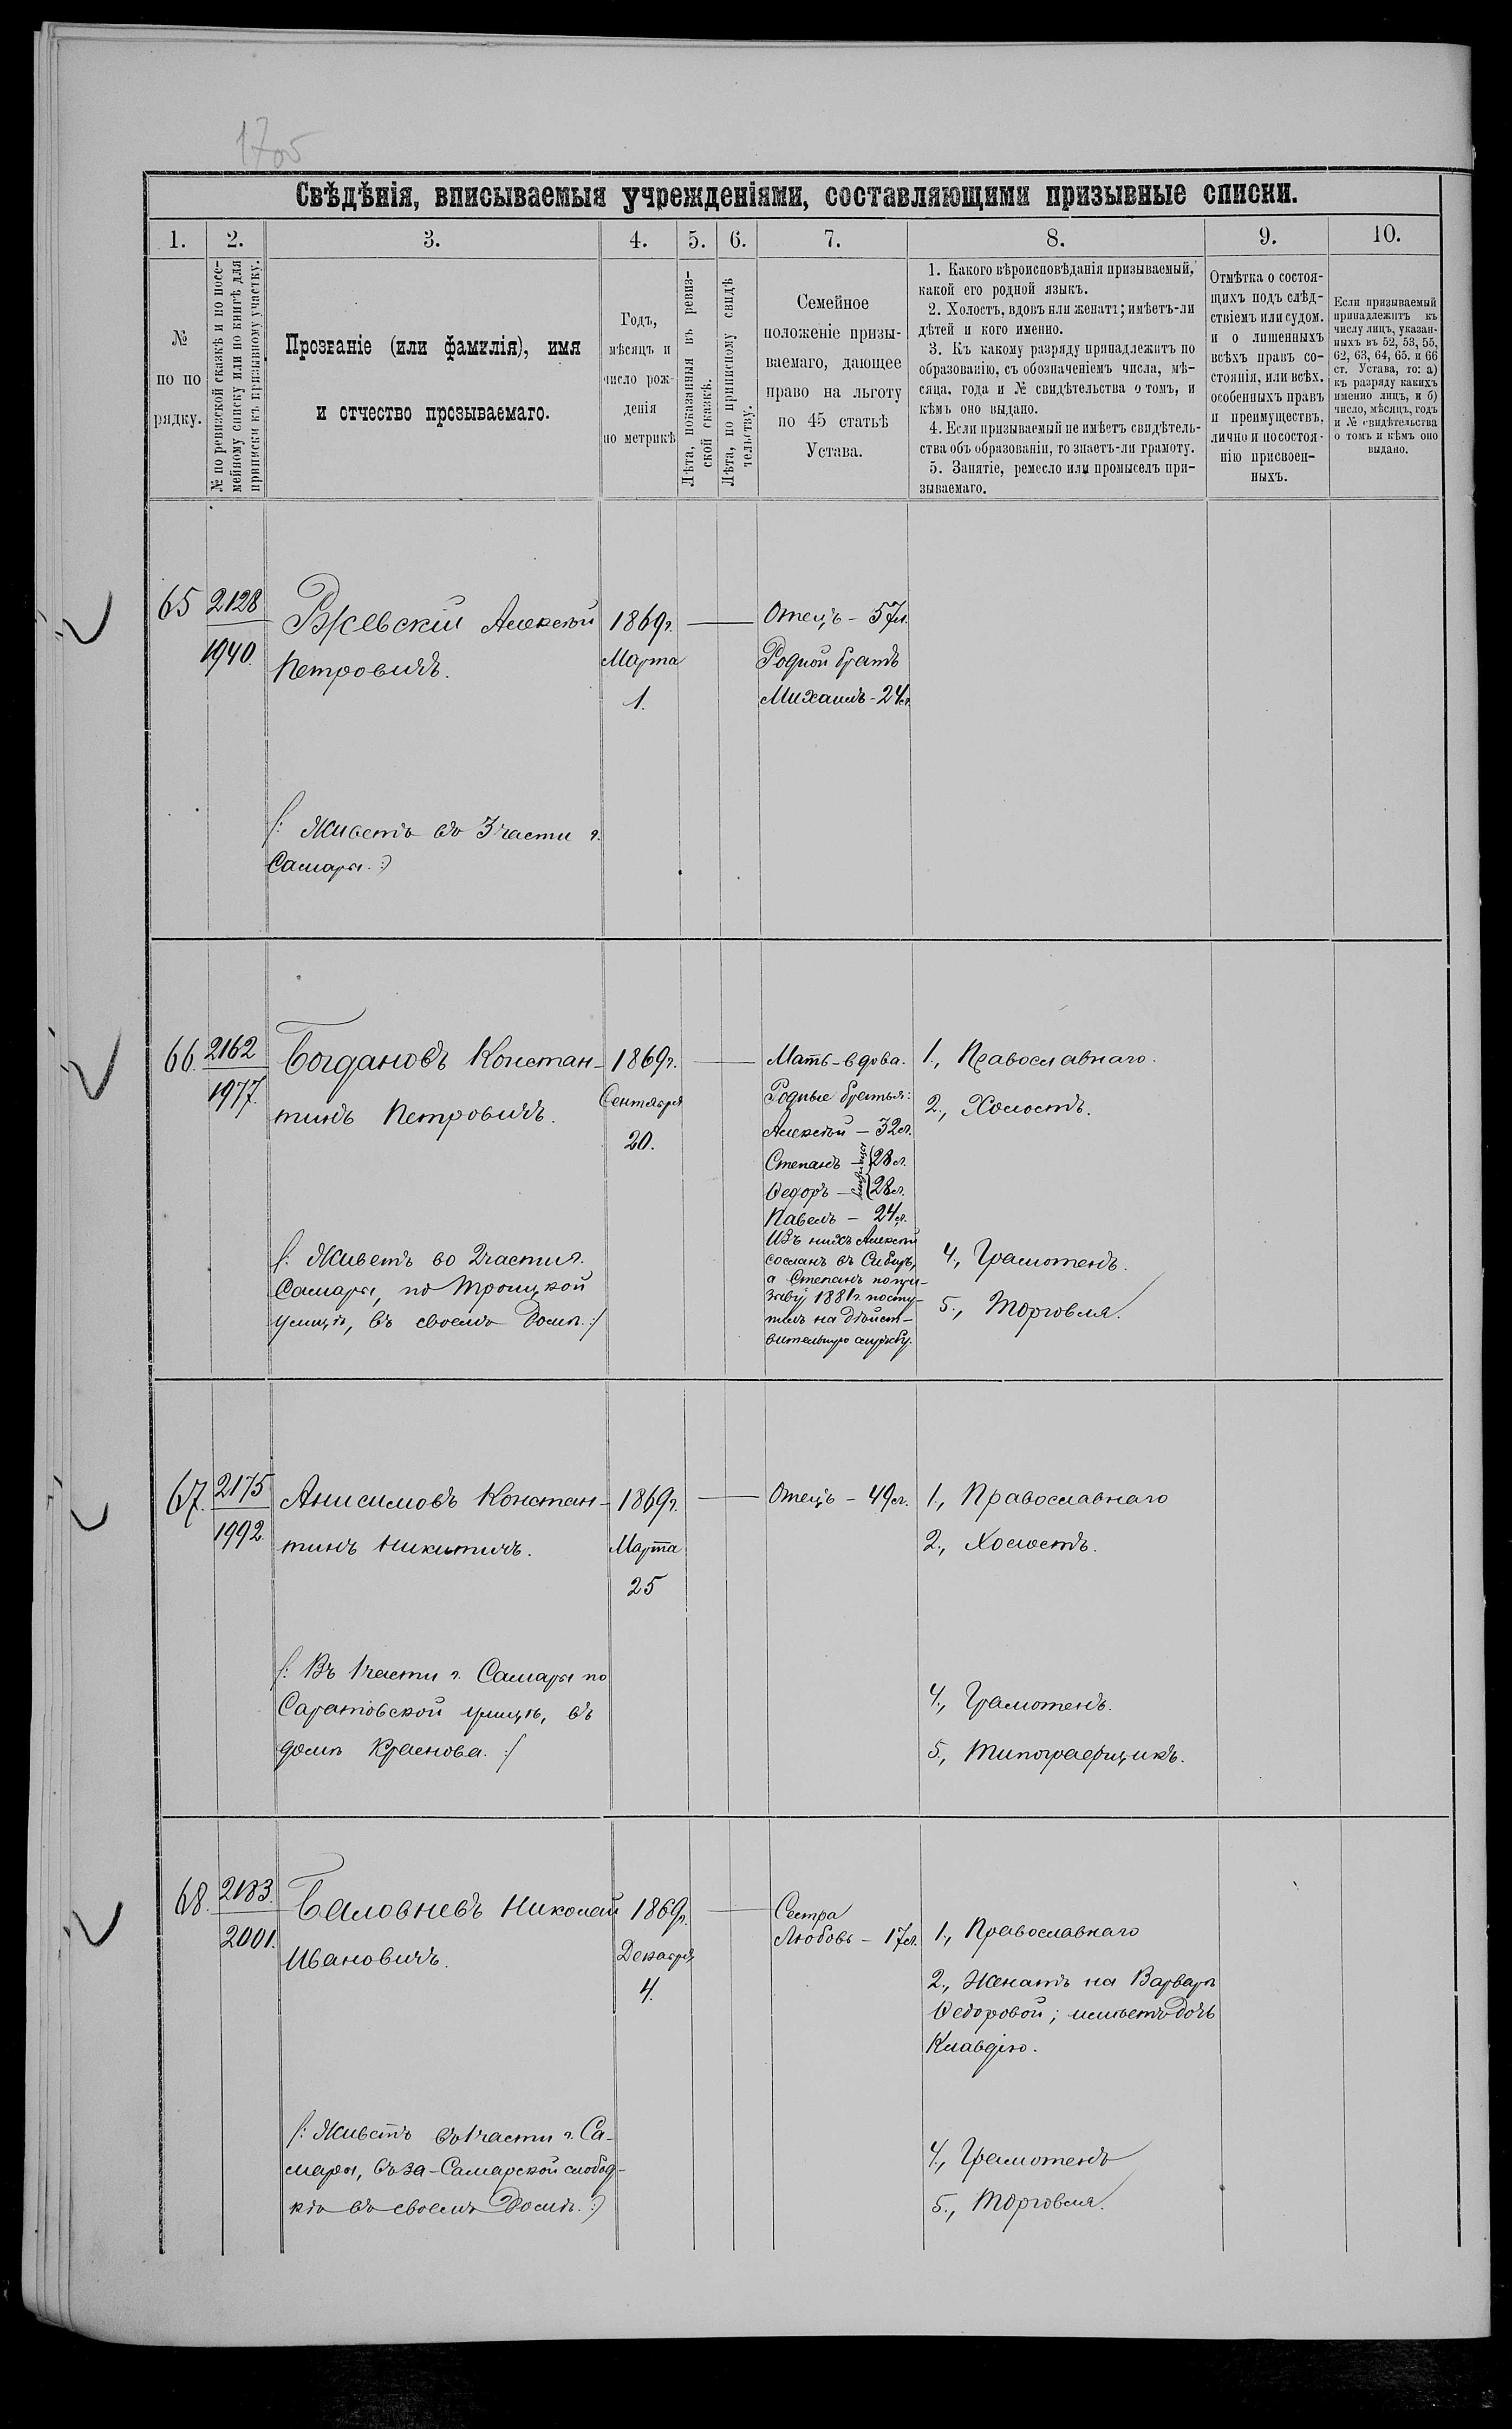 1705
Свѣдѣнія, вписываемыя учрежденіями, составляющими призывные списки.
1. 2. 3. 4. 5. 6. 7. 8. 9. 10.
№
по по
рядку.
№ по ревизской сказкѣ и по посе-
мейному списку или по книгѣ для
приписки къ призывному участку.
Прозваніе (или фамилія), имя
и отчество призываемаго.
Годъ,
мѣсяцъ и
число рож-
денія
по метрикѣ
Лѣта, показанныя въ ревиз-
ской сказкѣ.
Лѣта, по приписному свидѣ
тельству.
Семейное
положеніе призы-
ваемаго, дающее
право на льготу
по 45 статьѣ
Устава.
1. Какого вѣроисповѣданія призываемый,
какой его родной языкъ.
2. Холостъ, вдовъ или женатъ; имѣетъ-ли
дѣтей и кого именно.
3. Къ какому разряду принадлежитъ по
образованію, съ обозначеніемъ числа, мѣ-
сяца, года и № свидѣтельства о томъ, и
кѣмъ оно выдано.
4. Если призываемый не имѣетъ свидѣтель-
ства объ образованіи, то знаетъ-ли грамоту.
5. Занятіе, ремесло или промыселъ при-
зываемаго.
Отмѣтка о состоя-
щихъ подъ слѣд-
ствіемъ или судом.
и о лишенныхъ
всѣхъ правъ со-
стоянія, или всѣх.
особенныхъ правъ
и преимуществъ,
лично и по состоя-
нію присвоен-
ныхъ.
Если призываемый
принадлежитъ къ
числу лицъ, указан-
ныхъ въ 52, 53, 55,
62, 63, 64, 65. и 66
ст. Устава, то: а)
къ разряду какихъ
именно лицъ, и б)
число, мѣсяцъ, годъ
и № свидѣтельства
о томъ и кѣмъ оно
выдано.
65 2128
1940.
Ржевскій Алексѣй
Петровичъ.
1869г.
Марта
1.
Отецъ - 57л.
Родной братъ
Михаилъ - 24л.
/: Живетъ въ 3 части г.
Самары. :)
66. 2162
1977.
Богдановъ Констан-
тинъ Петровичъ.
1869г.
Сентября
20.
Мать - вдова.
Родные братья:
Алексѣй - 32л.
Степанъ - 28л.
Ѳедоръ - 28л.
Павелъ - 24л.
Изъ нихъ Алексѣй
сосланъ въ Сибирь,
а Степанъ по при-
зыву 1881г. посту-
пилъ на дѣйст-
вительную службу.
1., Православнаго.
2., Холостъ.
4., Грамотенъ.
5., Торговля.
/: Живетъ во 2 части г.
Самары, по Троицкой
улицѣ, въ своемъ домѣ. :/
67. 2175
1992.
Анисимовъ Констан-
тинъ Никитичъ.
1869г.
Марта
25
Отецъ - 49л.
1., Православнаго
2., Холостъ.
4., Грамотенъ.
5., Типографщикъ.
/: Въ 1 части г. Самары по
Саратовской улицѣ, въ
домѣ Краснова. :/
68. 2183.
2001.
Баловневъ Николай
Ивановичъ.
1869г.
Декабря
4.
Сестра
Любовь - 17л.
1., Православнаго
2., Женатъ на Варварѣ
Ѳедоровой; имѣетъ дочь
Клавдію.
4., Грамотенъ
5., Торговля.
/: Живетъ въ 1 части г. Са-
мары, въ за-Самарской слобод-
кѣ въ своемъ домѣ. :)